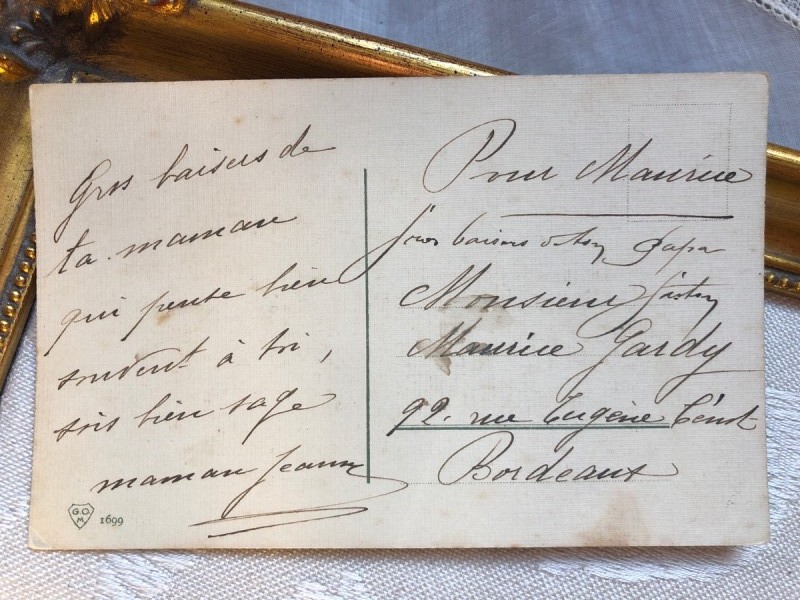 Gros baisers de
ta maman
qui pense bien
souvent à toi,
sois bien sage
maman Jeanne
G.O.
M.
1699
Pour Maurice
Gros baisers de ton Papa
Monsieur
Maurice Gardy
92. rue Eugène Ténot
Bordeaux